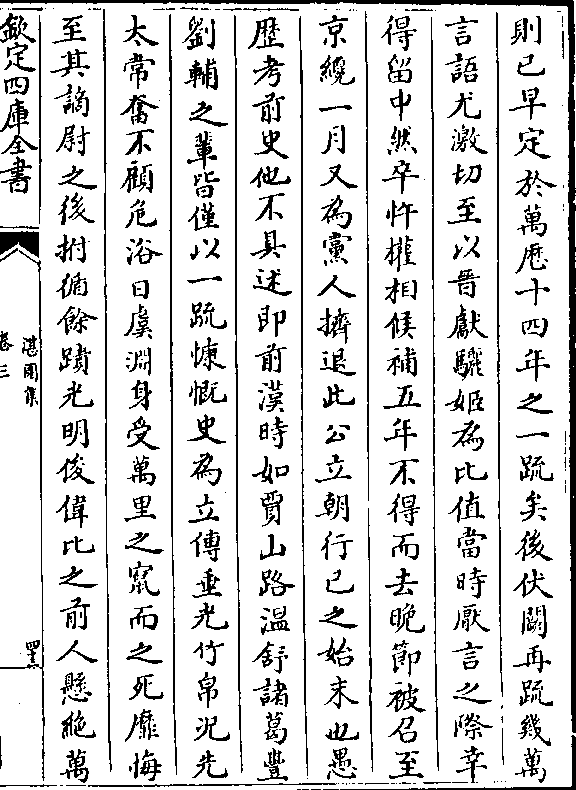 則已早定於萬厯十四年之一疏矣後伏闕再疏幾萬
言語尤激切至以晉獻驪姬為比值當時厭言之際幸
得留中然卒忤權相候補五年不得而去晚節被召至
京纔一月又為黨人擠退此公立朝行已之始末也愚
歴考前史他不具述即前漢時如賈山路温舒諸葛豐
劉輔之輩皆僅以一疏慷慨史為立傳垂光竹帛况先
太常奮不顧危浴日虞淵身受萬里之竄而之死靡悔
至其謫尉之後拊循餘蹟光明俊偉比之前人懸絶萬
欽定四庫全書
湛園集
卷三